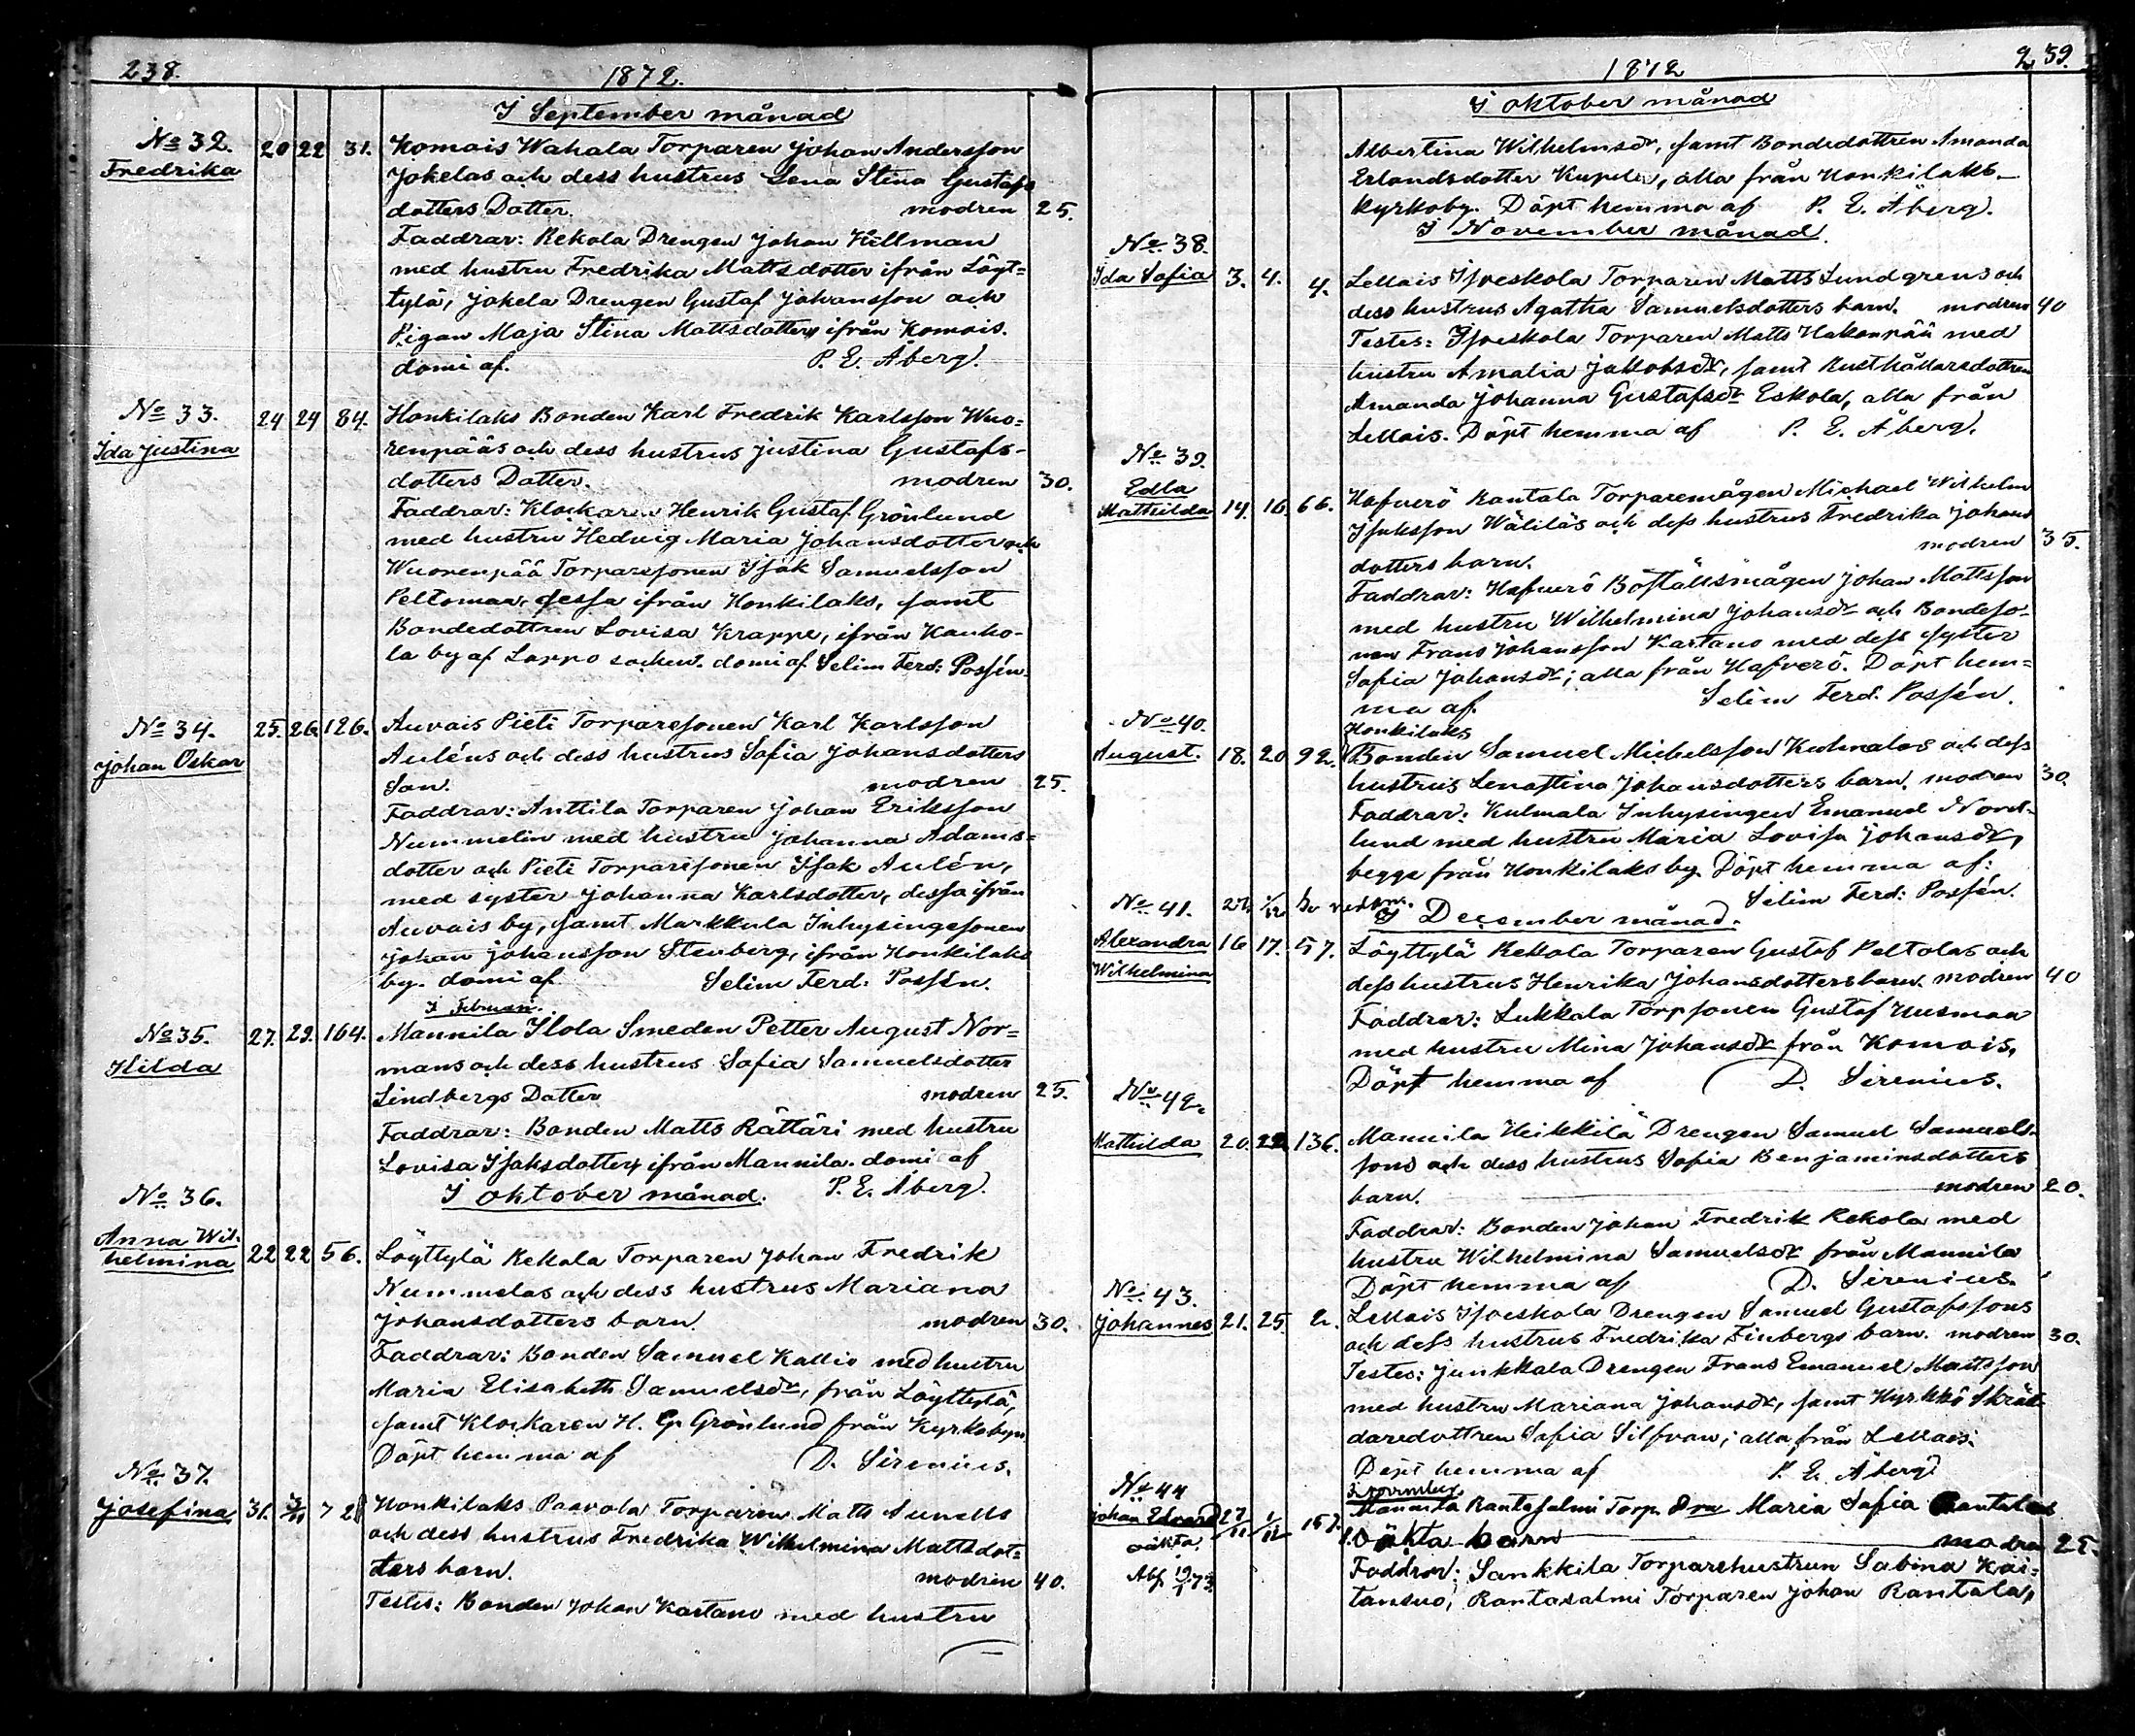 238.
1872.
I September månad
No 32. 20 22 31. Komois Wahala Torparen Johan Andersson
Fredrika Jokelas och dess hustrus Lena Stina Gustafs
dotters Dotter. modren 25.
Faddrar: Rekola Drengen Johan Hillman
med hustru Fredrika Mattsdotter ifrån Löyt=
tylä, Jokela Drengen Gustaf Johansson och
Pigan Maja Stina Mattsdotter, ifrån Komois.
domi af. P. E. Åberg.
No 33. 24 24 84. Honkilaks Bonden Karl Fredrik Karlsson Wuo=
Ida Justina renpääs och dess hustrus Justina Gustafs-
dotters Dotter. modren 30.
Faddrar: Klockaren Henrik Gustaf Grönlund
med hustru Hedvig Maria Johansdotter och
Wuorenpää Torparesonen Isak Samuelsson
Peltomaa, dessa ifrån Honkilaks, samt
Bondedottren Lovisa Krappe, ifrån Kauko-
la by af Lappo socken. domi af Selim Ferd: Possén.
No 34. 25. 26. 126. Auvais Pieti Torparesonen Karl Karlsson
Johan Oskar Auléns och dess hustrus Sofia Johansdotters
Son. modren 25.
Faddrar: Anttila Torparen Johan Eriksson
Nummelin med hustru Johanna Adams=
dotter och Pieti Torparesonen Isak Aulén,
med syster Johanna Karlsdotter, dessa ifrån
Auvais by, samt Markkula Inhysingesonen
Johan Johansson Stenberg, ifrån Honkilaks
by. domi af Selim Ferd: Possén.
I Februari.
No 35. 27. 29. 164. Mannila Ilola Smeden Petter August Nor=
Hilda mans och dess hustrus Sofia Samuelsdotter
Lindbergs Dotter modren 25.
Faddrar: Bonden Matts Rättäri med hustru
Lovisa Isaksdotter, ifrån Mannila. domi af
P. E. Åberg.
I Oktober månad.
No 36.
Anna Wil-
helmina 22 22 56. Löyttylä Rekola Torparen Johan Fredrik
Nummelas och dess hustrus Mariana
Johansdotters barn. modren 30.
Faddrar: Bonden Samuel Kallio med hustru
Maria Elisabeth Samuelsdr, från Löyttylä,
samt Klockaren H. G. Grönlund från Kyrkobyn
Döpt hemma af D. Sirenius.
No 37.
Josefina 31. 3/11 72 Honkilaks Paavola Torparen Matts Aunells
och dess hustrus Fredrika Wilhelmina Mattsdot=
ters barn. modren 40.
Testes: Bonden Johan Kartano med hustru
1872
239.
I Oktober månad
Albertina Wilhelmsdr, samt Bondedottren Amanda
Erlandsdotter, alla från Honkilaks-
Kyrkoby. Döpt hemma af P. E. Åberg.
I November månad.
No 38.
Ida Sofia 3. 4. 4. Lellais Isoeskola Torparen Matts Lundgrens och
dess hustrus Agatha Samuelsdotters barn. modren 40
Testes: Isoeskola Torparen Matts Hakonpää med
hustru Amalia Jakobsdr, samt Rusthållarsdottren
Amanda Johanna Gustafsdr Eskola, alla från
Lellais. Döpt hemma af P. E. Åberg.
No 39.
Edla
Mathilda 14. 16 66. Hafverö Rantala Torparemågen Michael Wilhelm
Isaksson Wäliläs och dess hustrus Fredrika Johans
dotters barn. modren 35.
Faddrar: Hafverö Boställsmågen Johan Mattsson
med hustru Wilhelmina Johansdr och Bondeso-
nen Frans Johansson Kartano med dess syster
Sofia Johansdr; alla från Hafverö. Döpt hem=
ma af. Selim Ferd. Possén.
No 40. Honkilaks
August. 18. 20 92. Bonden Samuel Michelsson Kulmalas och dess
hustrus Lenastina Johansdotters barn. modren 30.
Faddrar: Kulmala Inhysingen Emanuel Nord-
lund med hustru Maria Lovisa Johansdr,
begge från Honkilaks by. Döpt hemma af:
Selim Ferd: Possén.
No 41. 27. 1/12
I December månad.
Alexandra 16 17. 57. Löyttylä Rekola Torparen Gustaf Peltolas och
Wilhelmina dess hustrus Henrika Johansdotters barn. modren 40
Faddrar: Lukkala Torpsonen Gustaf Uusmaa
med hustru Mina Johansdr från Komois.
Döpt hemma af D. Sirenius.
No 42.
Mathilda 20. 22 136. Mannila Heikkilä Drengen Samuel Samuels-
sons och dess hustrus Sofia Benjaminsdotters
barn. modren 20.
Faddrar: Bonden Johan Fredrik Rekola med
hustru Wilhelmina Samuelsdr från Mannila
Döpt hemma af D. Sirenius.
No 43.
Johannes 21. 25. 2. Lellais Isoeskola Drengen Samuel Gustafssons
och dess hustrus Fredrika Finbergs barn. modren 30.
Testes: Junkkala Drengen Frans Emanuel Mattsson
med hustru Mariana Johansdr, samt Kyrkkö Skräd-
daredottren Sofia Silfvan; alla från Lellais.
Döpt hemma af P. E. Åberg
No 44 I november
Johan Edvard 27/11 1/12 157. Mannila Rantasalmi Torp. Maria Sofia Rantalas
oäkta. oäkta barn modren 25.
Abs 19/1 73. Faddrar: Sankkila Torparehustrun Sabina Kai=
tansuo, Rantasalmi Torparen Johan Rantala,